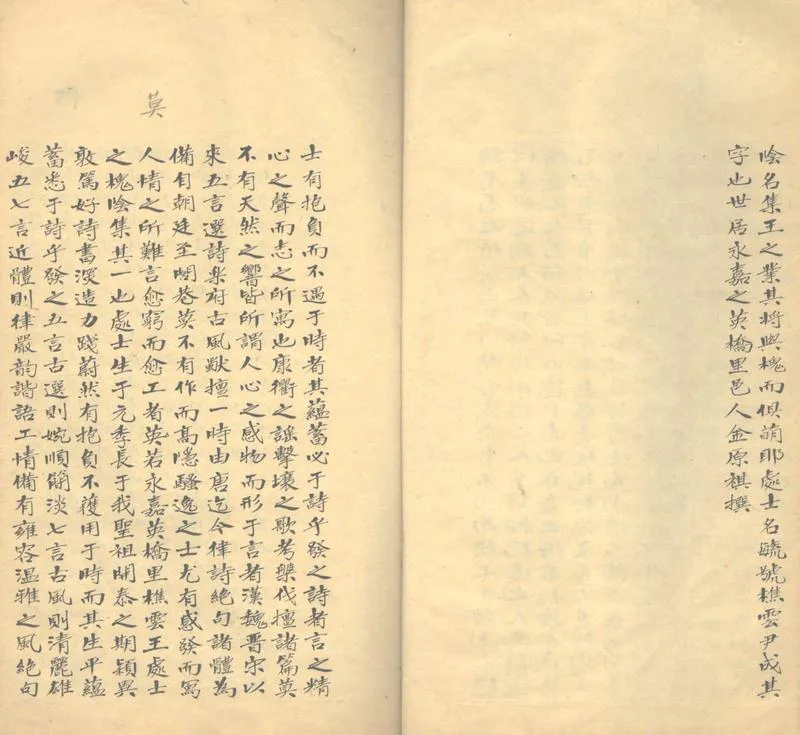 陰名集王之業其將與槐而俱萌耶處士名毓號樵雲尹成其
字也世居永嘉之英橋里邑人金原祺撰
莫
士有抱負而不遇于時者其蘊蓄必于詩乎發之詩者言之精
心之聲而志之所寓也康衢之謠擊壤之歌考槃伐檀諸篇莫
不有天然之響皆所謂人心之感物而形于言者漢魏晋宋以
來五言選詩樂府古風獣擅一時由唐迄今律詩絶句諸體為
備自朝廷至閭巷莫不有作而高隱騷逸之士尤有感發而寫
人情之所難言愈窮而愈工者英若永嘉英橋里樵雲王處士
之槐陰集其一也處士生于元季長于我聖祖開泰之期穎異
敦篤好詩書深造力踐蔚然有抱負不獲用于時而其生平蘊
蓄悉于詩乎發之五言古選則婉順閒淡七言古風則清麗雄
峻五七言近體則律嚴韵諧語工情備有雍容溫雅之風絶句